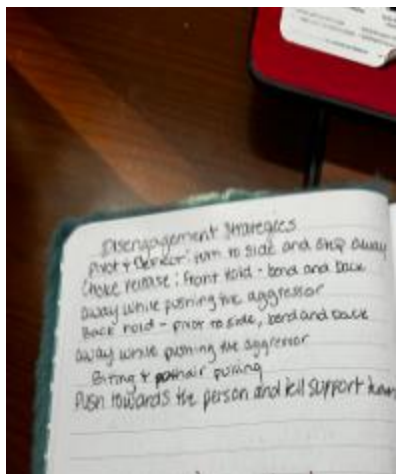 Disengagement Strategies
Pivot + Deflect: turn to side and step away
Choke release: front hold - bend and back
away while pushing the aggressor
Back hold - pivot to side, bend and back
away while pushing the aggressor
Biting + hair pulling
Push towards the person and tell support